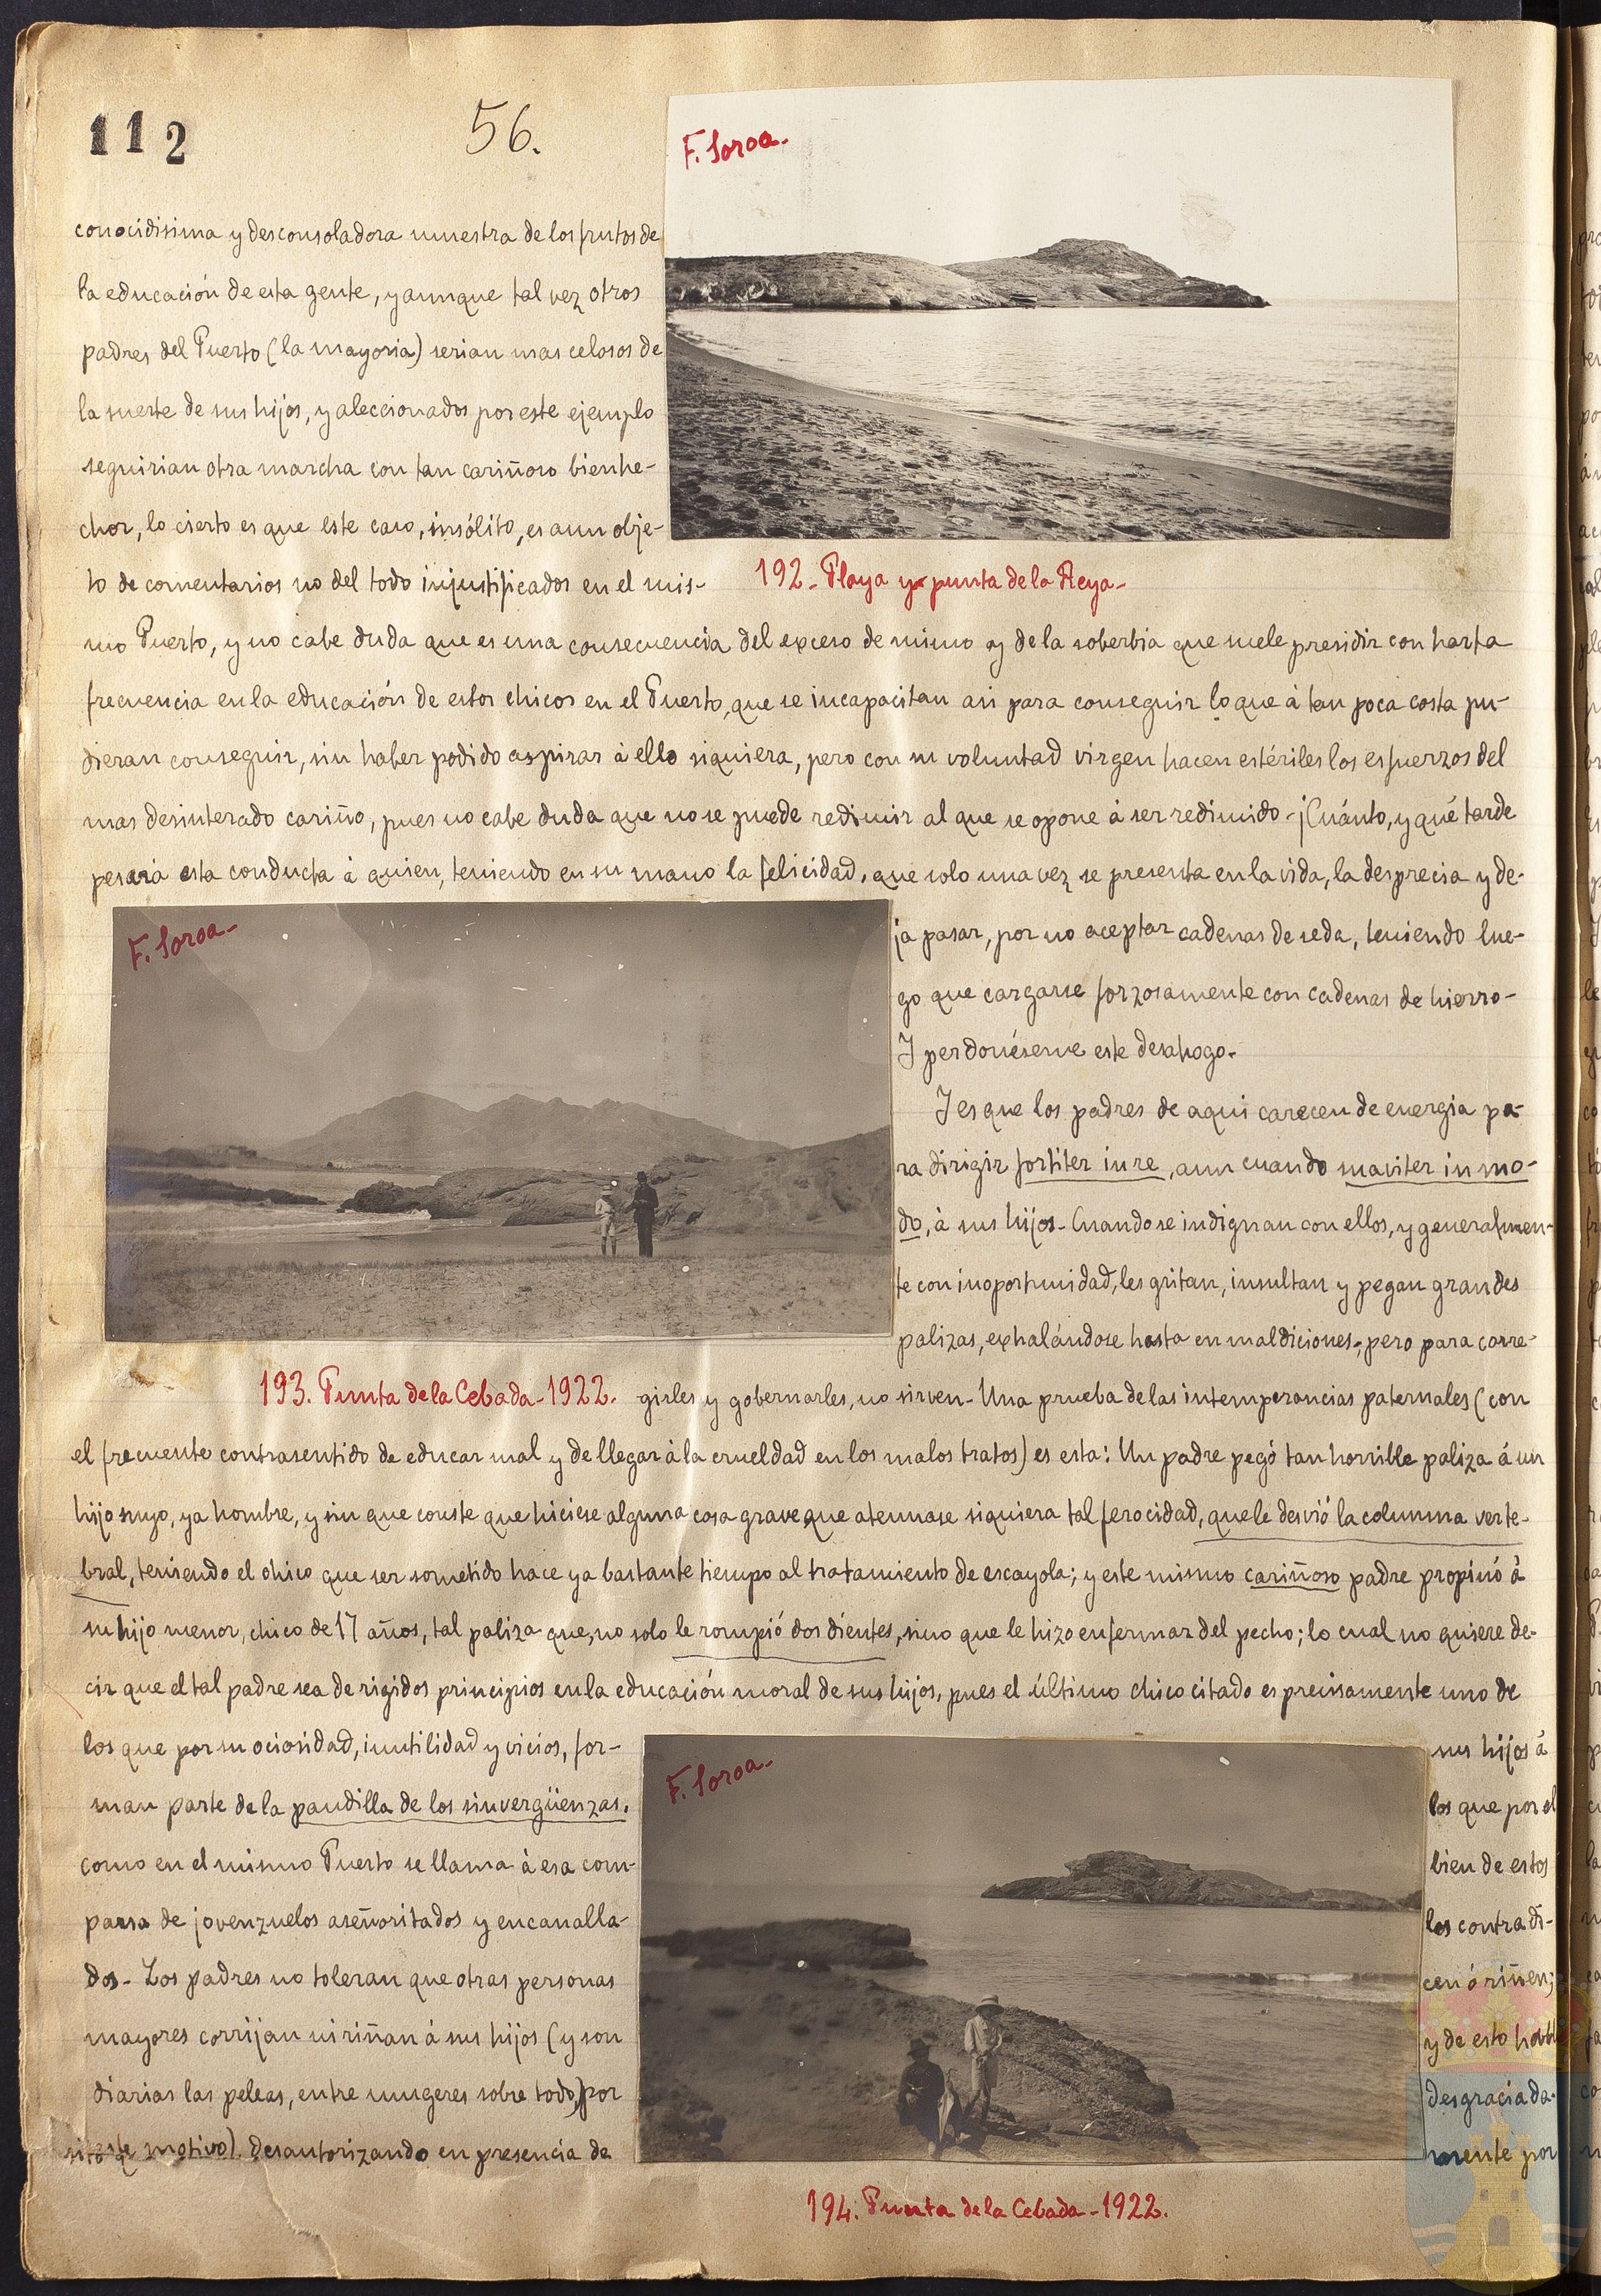 112
56.
F. Soroa-
conocidisima y desconsoladora muestra de los frutos de
la educación de esta gente, y aunque tal vez otros
padres del Puerto (la mayoria) serian mas celosos de
la suerte de sus hijos, y aleccionados por este ejemplo
seguirian otra marcha con tan cariñoso bienhe-
chor, lo cierto es que este caso, insólito, es aun obje-
to de comentarios no del todo injustificados en el mis-
192- Playa y punta de la Reya-
mo Puerto, y no cabe duda que es una consecuencia del exceso de mimo y de la soberbia que suele presidir con harta
frecuencia en la educación de estos chicos en el Puerto, que se incapacitan asi para conseguir lo que á tan poca costa pu-
dieran conseguir, sin haber podido aspirar á ello siquiera, pero con su voluntad virgen hacen estériles los esfuerzos del
mas desinterado cariño, pues no cabe duda que no se puede redimir al que se opone á ser redimido- ¡Cuánto, y qué tarde
pesará esta conducta á quien, teniendo en su mano la felicidad, que solo una vez se presenta en la vida, la desprecia y de-
F. Soroa-
ja pasar, por no aceptar cadenas de seda, teniendo lue-
go que cargarse forzosamente con cadenas de hierro-
Y perdonéseme este desahogo-
Y es que los padres de aqui carecen de energia pa-
ra dirigir fortiter in re, aun cuando suaviter in mo-
do, á sus hijos- Cuando se indignan con ellos, y generalmen-
te con inoportunidad, les gritan, insultan y pegan grandes
palizas, exhalándose hasta en maldiciones, pero para corre-
193. Punta de la Cebada-1922.
girles y gobernarles, no sirven- Una prueba de las intemperancias paternales (con
el frecuente contrasentido de educar mal y de llegar á la crueldad en los malos tratos) es esta: Un padre pegó tan horrible paliza á un
hijo suyo, ya hombre, y sin que conste que hiciese alguna cosa grave que atenuase siquiera tal ferocidad, que le desvió la columna verte-
bral, teniendo el chico que ser sometido hace ya bastante tiempo al tratamiento de escayola; y este mismo cariñoso padre propinó á
su hijo menor, chico de 17 años, tal paliza que, no solo le rompió dos dientes, sino que le hizo enfermar del pecho; lo cual no quiere de-
cir que el tal padre sea de rigidos principios en la educación moral de sus hijos, pues el último chico citado es precisamente uno de
los que por su ociosidad, inutilidad y vicios, for-
man parte de la pandilla de los sinvergüenzas,
como en el mismo Puerto se llama á esa com-
parsa de jovenzuelos aseñoritados y encanalla-
dos- Los padres no toleran que otras personas
mayores corrijan ni riñan á sus hijos (y son
diarias las peleas, entre mugeres sobre todo, por
este motivo) desautorizando en presencia de
F. Soroa-
sus hijos á
los que por el
bien de estos
les contradi-
cen ó riñen;
y de esto
desgraciada-
mente por
194. Punta de la Cebada-1922.